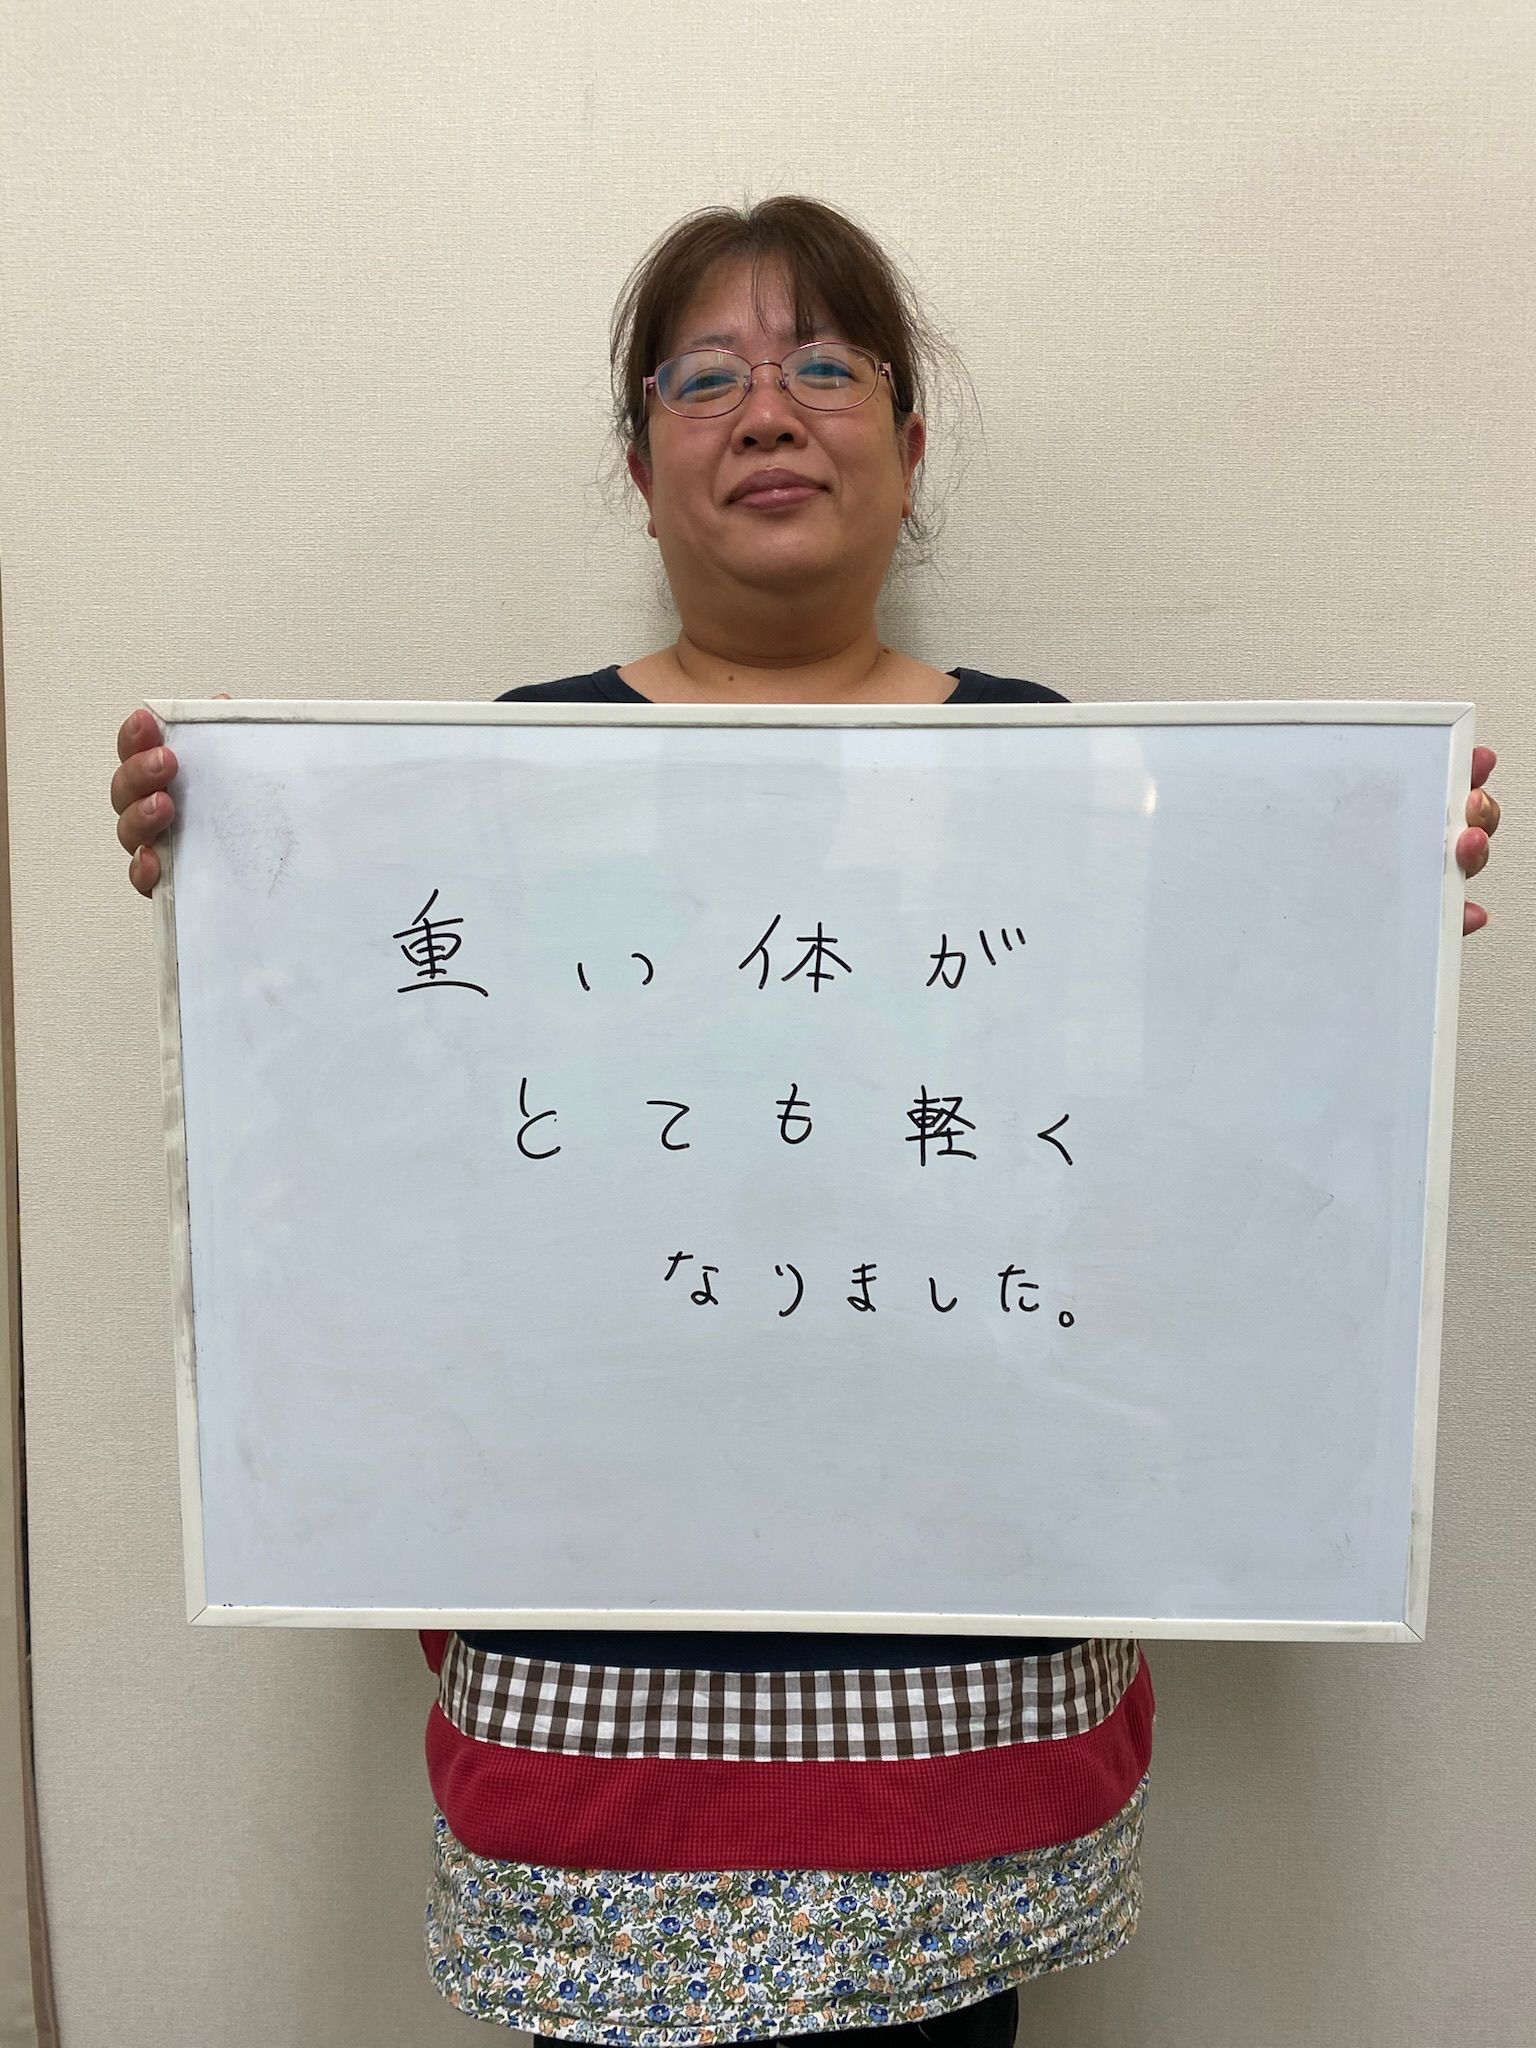 重い体が
とても軽く
なりました。